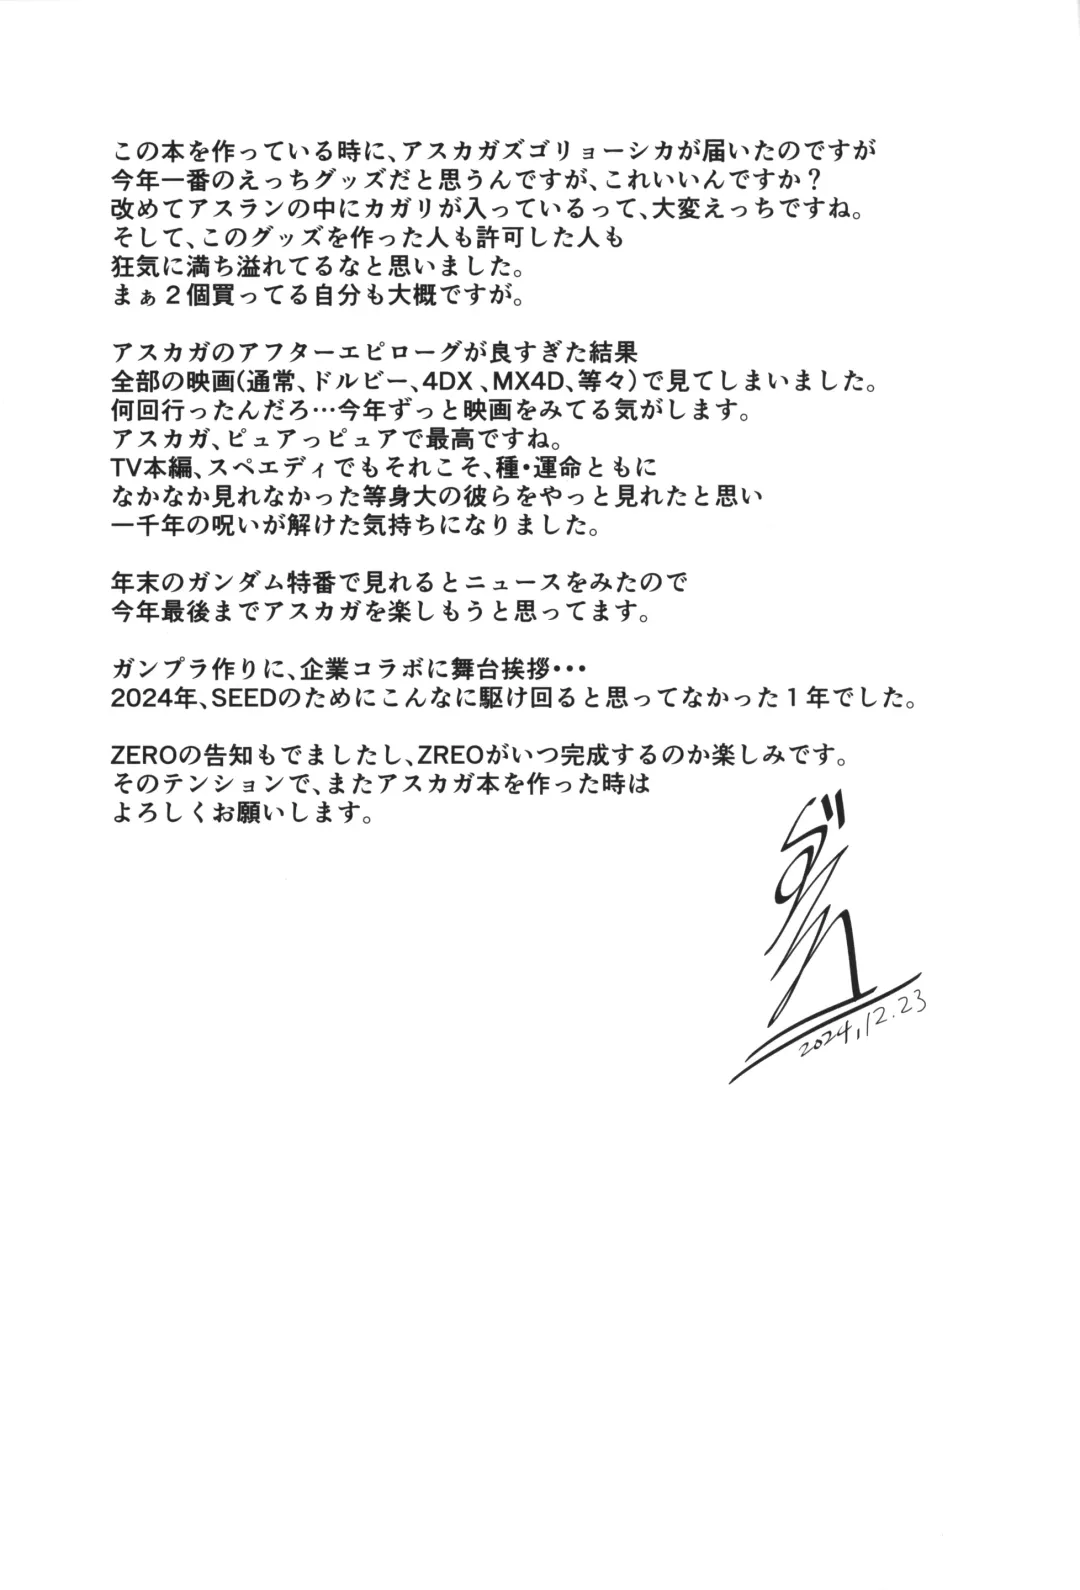 この本を作っている時に、アスカガズゴリョーシカが届いたのですが
今年一番のえっちグッズだと思うんですが、これいいんですか？
改めてアスランの中にカガリが入っているって、大変えっちですね。
そして、このグッズを作った人も許可した人も
狂気に満ち溢れてるなと思いました。
まぁ２個買ってる自分も大概ですが。
アスカガのアフターエピローグが良すぎた結果
全部の映画(通常、ドルビー、4DX 、MX4D、等々)で見てしまいました。
何回行ったんだろ…今年ずっと映画をみてる気がします。
アスカガ、ピュアっピュアで最高ですね。
TV本編、スペエディでもそれこそ、種・運命ともに
なかなか見れなかった等身大の彼らをやっと見れたと思い
一千年の呪いが解けた気持ちになりました。
年末のガンダム特番で見れるとニュースをみたので
今年最後までアスカガを楽しもうと思ってます。
ガンプラ作りに、企業コラボに舞台挨拶・・・
2024年、SEEDのためにこんなに駆け回ると思ってなかった１年でした。
ZEROの告知もでましたし、ZREOがいつ完成するのか楽しみです。
そのテンションで、またアスカガ本を作った時は
よろしくお願いします。
2024,12.23